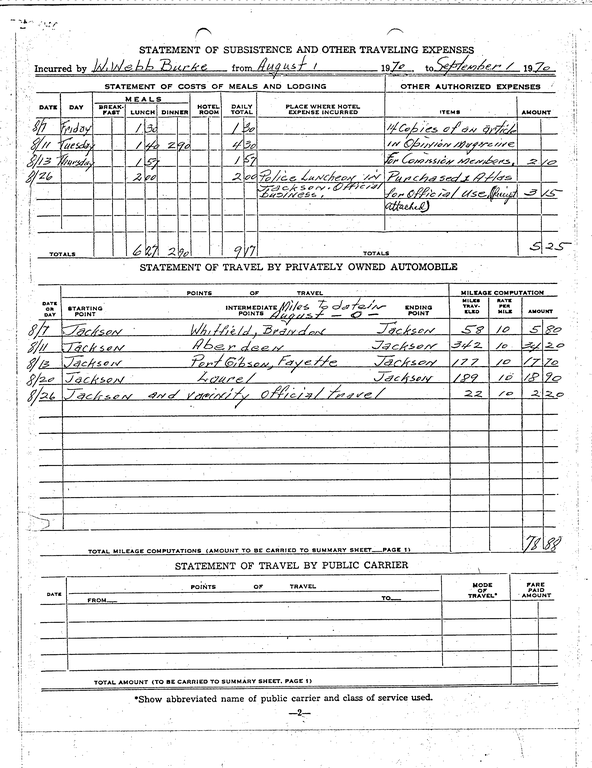 STATEMENT OF SUBSISTENCE AND OTHER TRAVELING EXPENSES
Incurred by W. Webb Burke from August 1 1970 to September 1 1970
STATEMENT OF COSTS OF MEALS AND LODGING OTHER AUTHORIZED EXPENSES
DATE DAY MEALS BREAK-FAST LUNCH DINNER HOTEL ROOM DAILY TOTAL PLACE WHERE HOTEL EXPENSE INCURRED ITEMS AMOUNT
8/7 Friday 1 30 1 30 14 Copies of an article
8/11 Tuesday 1 40 2 90 4 30 in Opinion magazine
8/13 Thursday 1 57 1 57 for Comission members, 2 10
8/26 2 00 2 00 Police Luncheon in Purchased 1 Atlas
Jackson. Official for Official Use, 3 15
business, attached)
TOTALS 6 27 2 90 9 17 TOTALS 5 25
STATEMENT OF TRAVEL BY PRIVATELY OWNED AUTOMOBILE
DATE OR DAY POINTS OF TRAVEL MILEAGE COMPUTATION
STARTING POINT INTERMEDIATE POINTS Miles to date in August - 0 - ENDING POINT MILES TRAV-ELED RATE PER MILE AMOUNT
8/7 Jackson Whitfield, Brandon Jackson 58 10 5 80
8/11 Jackson Aberdeen Jackson 342 10 34 20
8/13 Jackson Port Gibson, Fayette Jackson 177 10 17 70
8/20 Jackson Laurel Jackson 189 10 18 90
8/26 Jackson and official travel 22 10 2 20
TOTAL MILEAGE COMPUTATIONS (AMOUNT TO BE CARRIED TO SUMMARY SHEET—PAGE 1) 78 88
STATEMENT OF TRAVEL BY PUBLIC CARRIER
DATE POINTS OF TRAVEL MODE OF TRAVEL* FARE PAID AMOUNT
FROM TO
TOTAL AMOUNT (TO BE CARRIED TO SUMMARY SHEET, PAGE 1)
*Show abbreviated name of public carrier and class of service used.
—2—